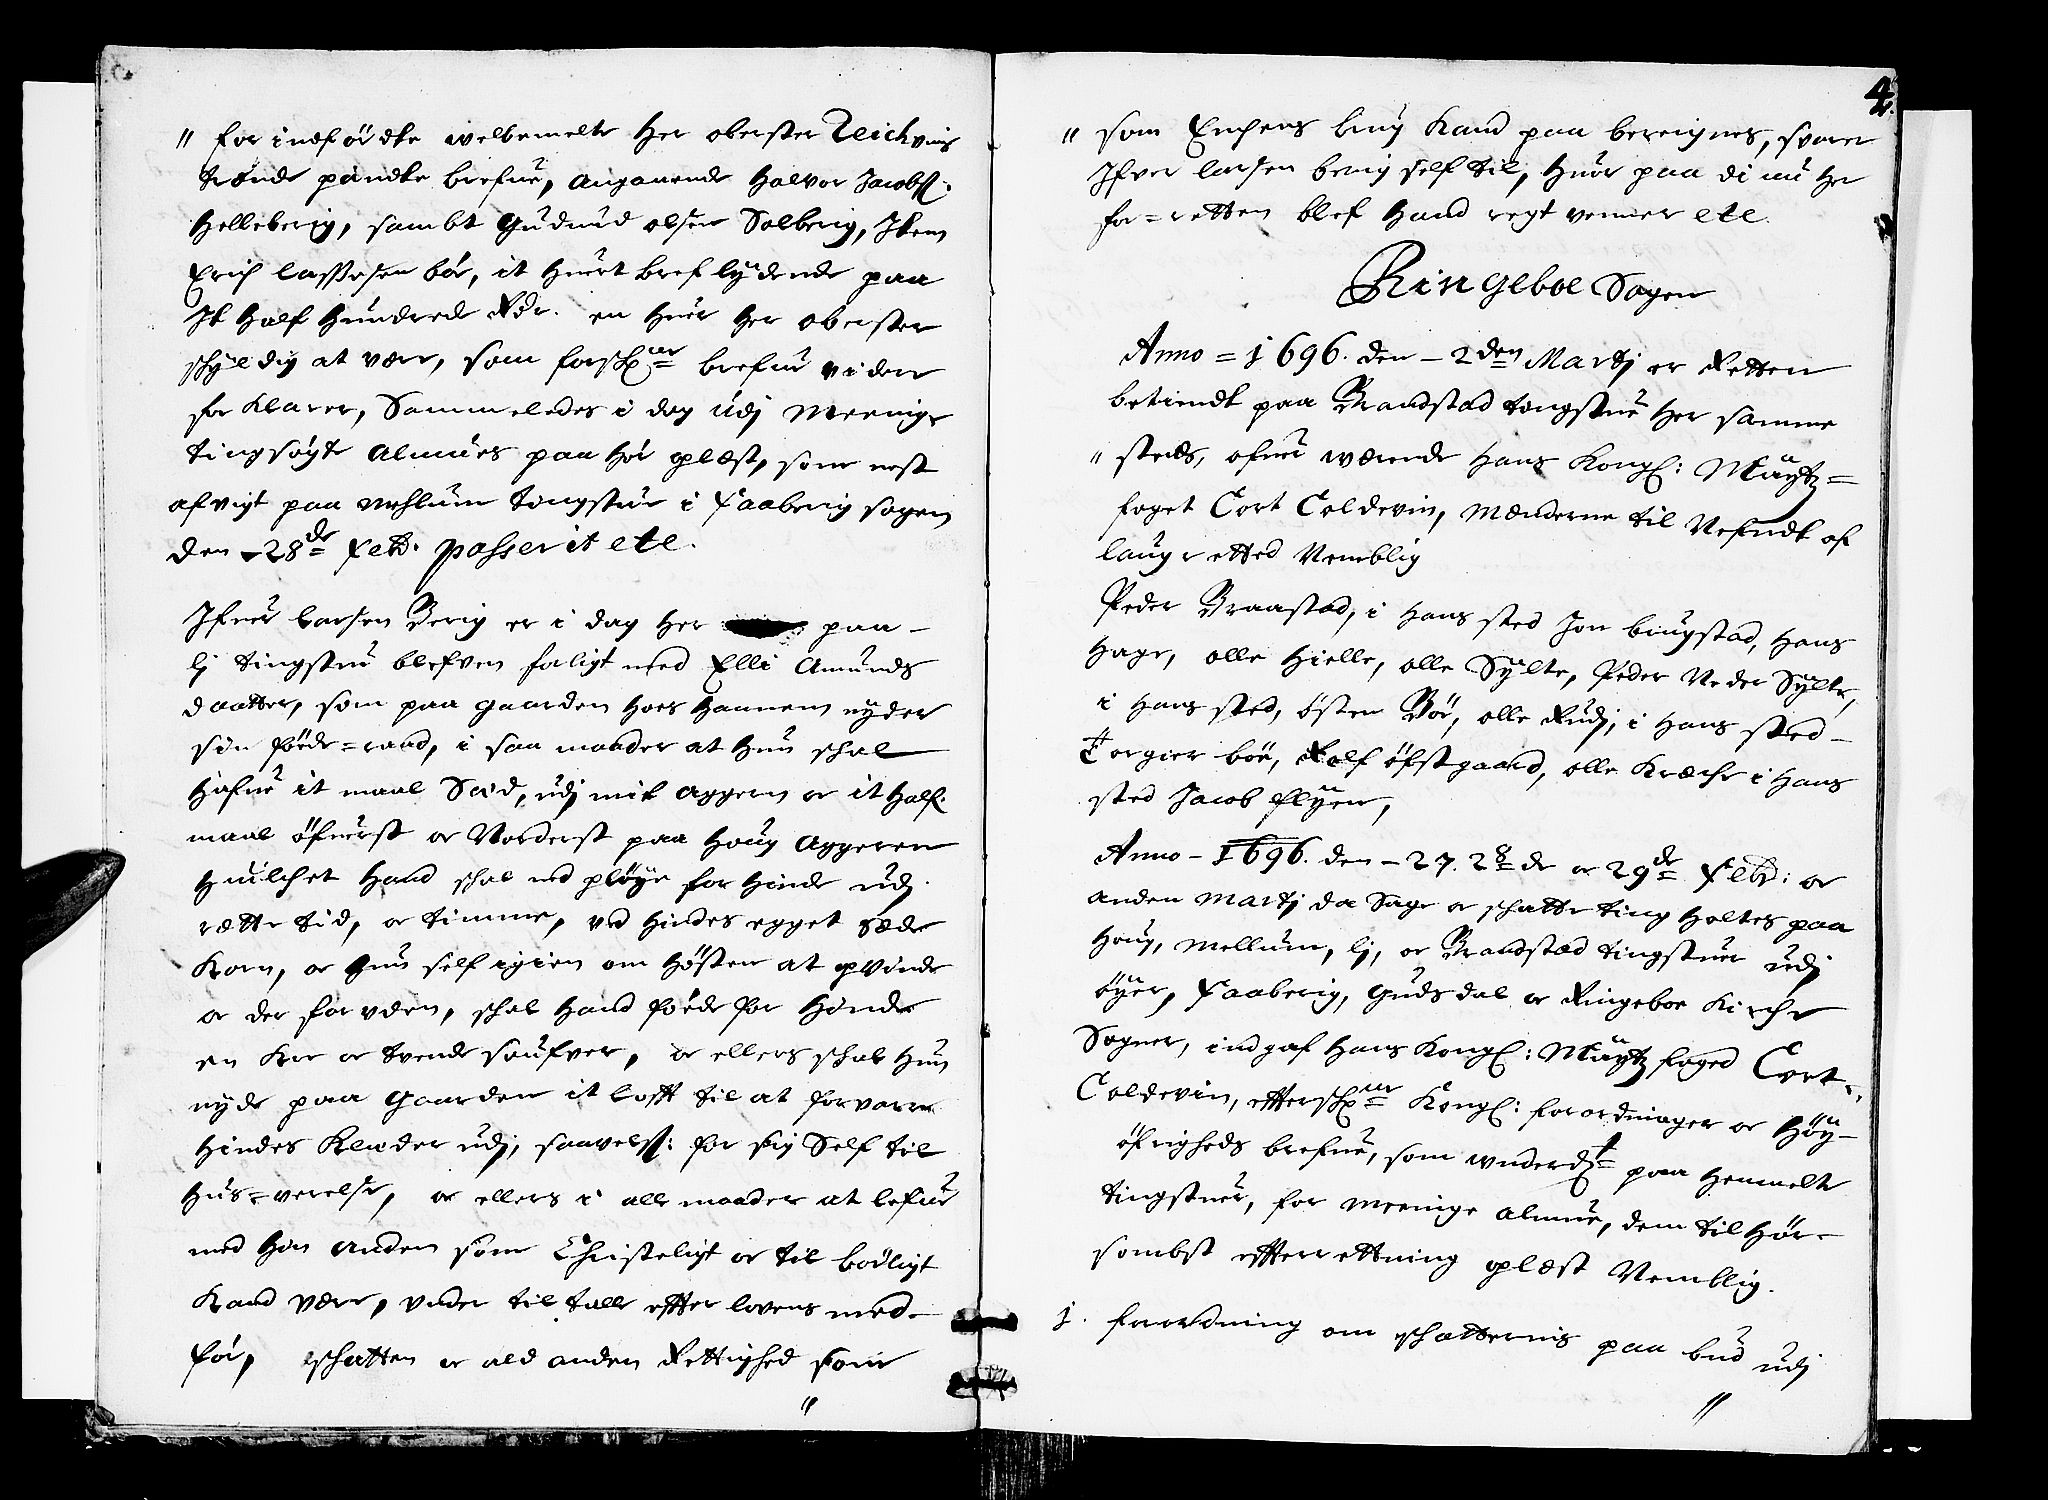 " for indfördte welbemelte Her oberster Reichvins
trende pandte brefue, angaaende Halvor Jacobs:
Helleberig, sambt Gudmud olsen Solberig, Item
Erich lassesen bör, it huert bref lydende paa
It half hundrede Rdr. en huer Her oberster
schyldig at være, som forsch: brefue videre
for klarer, Sammeledes i dag udj Meenige
tingsögte almues paa hör oplæst, som nest
afvigt paa Mehlum tingstue i Faaberig sogen
den - 28de Feb: passerit etc.
Ifuer larsen Berig er i dag Her paa -
lj tingstue blefven forligt med Elli Amunds
daatter, som paa gaarden hoes hannem nyder
sin föde=raad, i saa maader at hun schal
hafue it maal Sæd, udj mit aggeren oc it half
maal öfuerst oc Norderst paa houg Aggeren
huilchet hand schal ved pløye for hinde udj
rette tid, oc timme, ved hindes egget sæde
korn, oc hun self igien om høsten at opvinde
oc der foruden, schal hand föde for hinde
en koe oc tvende saufver, oc ellers schal hun
nyde paa Gaarden it lofft til at forvare
hindes klæder udj, saavels: for sig Self til
hus=verelse, oc ellers i alle maader at lefue
med hin anden som Christeligt oc tilbørligt
kand være, under tiltalle effter lovens med-
för, schatten oc ald anden Rettighed som
"
4.
" som Enchens brug kand paa bereignes, svarer
Ifver larsen berig self til, huor paa di nu her
for=retten blef hand regt venner etc.
Ringeboe Sogen
Anno = 1696. den - 2den Martj er Retten
betiendt paa Brandstad tingstue her samme
" steds, ofuer værende hans Kongl: Mäytz=
foget Cort Coldevin, Mænderne til Nefndt af
laugretted Nemblig
Peder Braastad, i hans sted Jon brugstad, Hans
Hage, olle Hielle, olle Sylte, Peder Neder Sylte,
i hans sted, østen Bör, olle Rudj, i hans sted -
Torgier böe, Rolf öfstgaard, olle Kræche i hans
sted Jacob flyen,
Anno - 1696. den - 27. 28de oc 29de Feb: oc
anden Martj da Sage oc schatte ting holtes paa
houg, Mellum, lj, oc Brandstad tingstuer udj
öyer, Faaberig, Gudsdal oc Ringeboe Kirche
Sogner, indgaf hans Kongl: Mäytz foged Cort
Coldevin, effterschr: Kongl: forordninger oc Höy-
öfrigheds brefue, som underd: paa bemelte
tingstuer, for meenige almue, dem til hör-
sombst effterrettning oplæst Nemblig.
1. forordning om schatternis paa bud udj
"